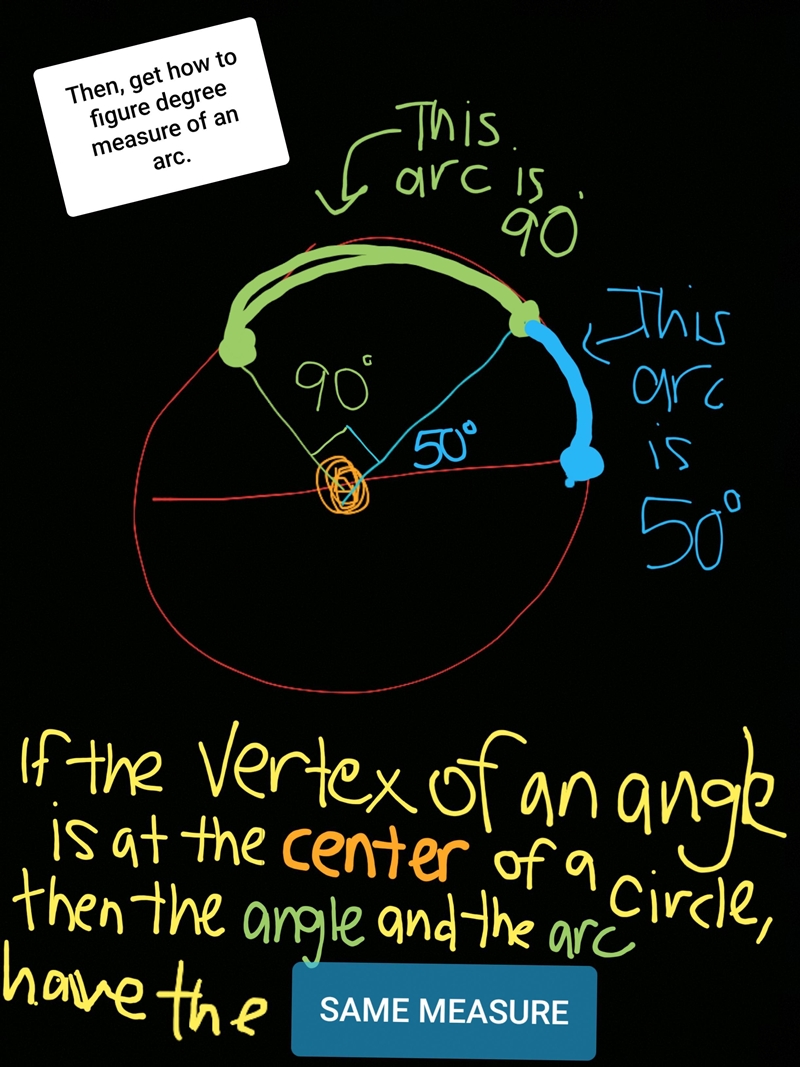 Then, get how to
figure degree
measure of an
arc.
This
arc is
90°
This
arc
is
50°
90°
50°
If the vertex of an angle
is at the center of a circle,
then the angle and the arc
have the SAME MEASURE